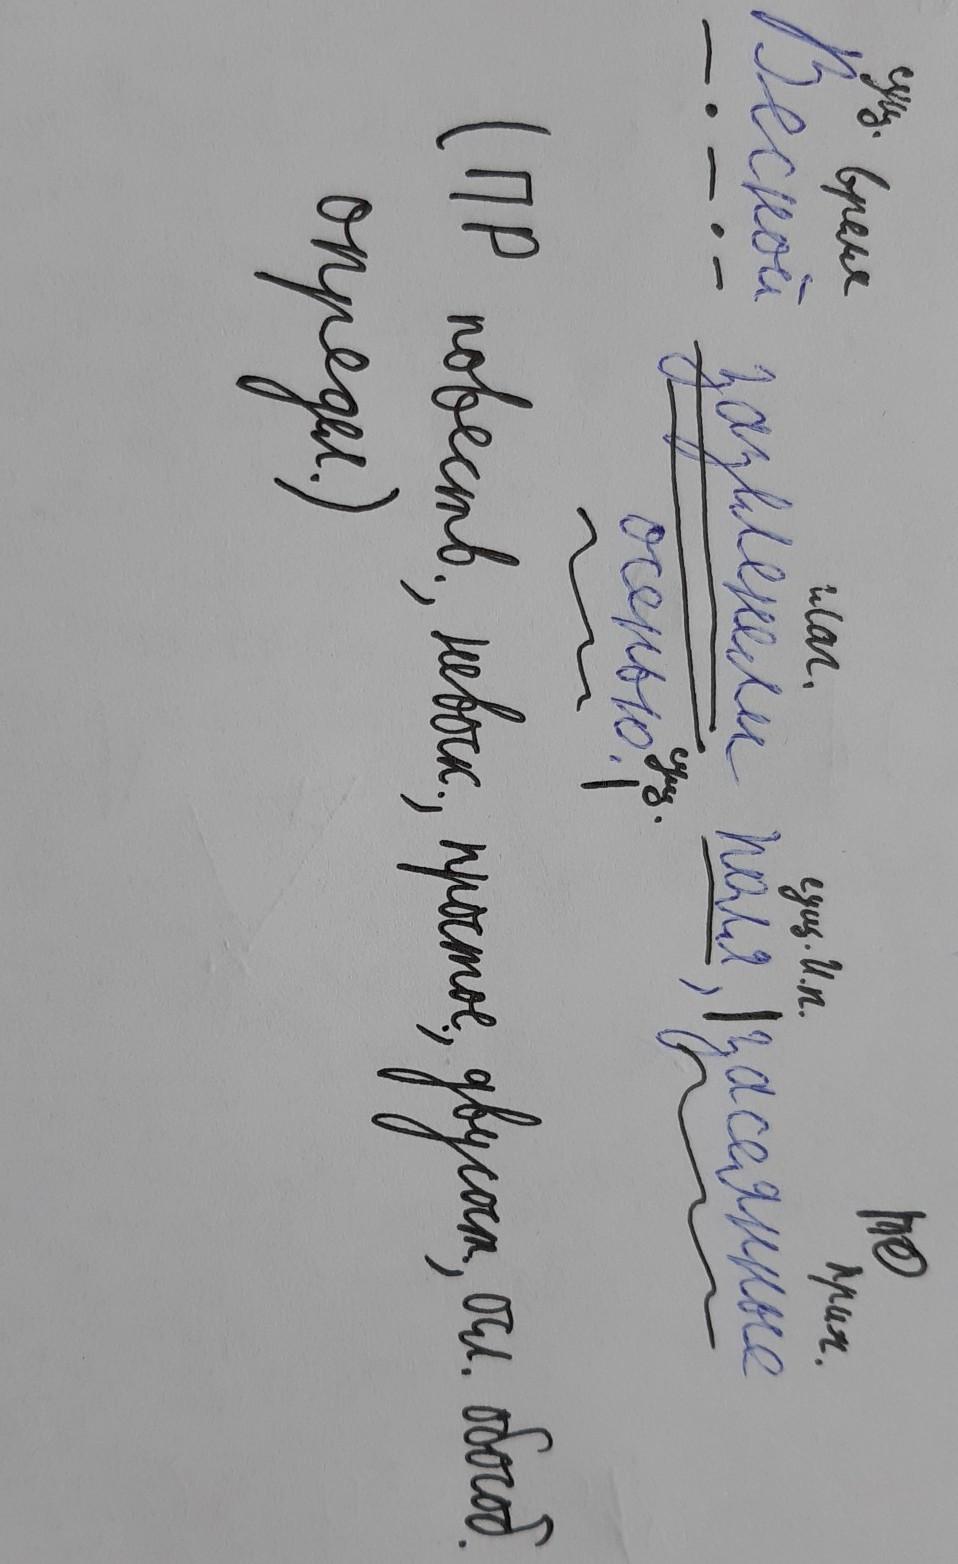 сущ. время глаг. сущ. И.п. ПО прич.
Весной зазеленели поля, |засеянные
сущ.
осенью.|
(ПР повеств., невоск., простое, двусост., осл. обособ.
определ.)